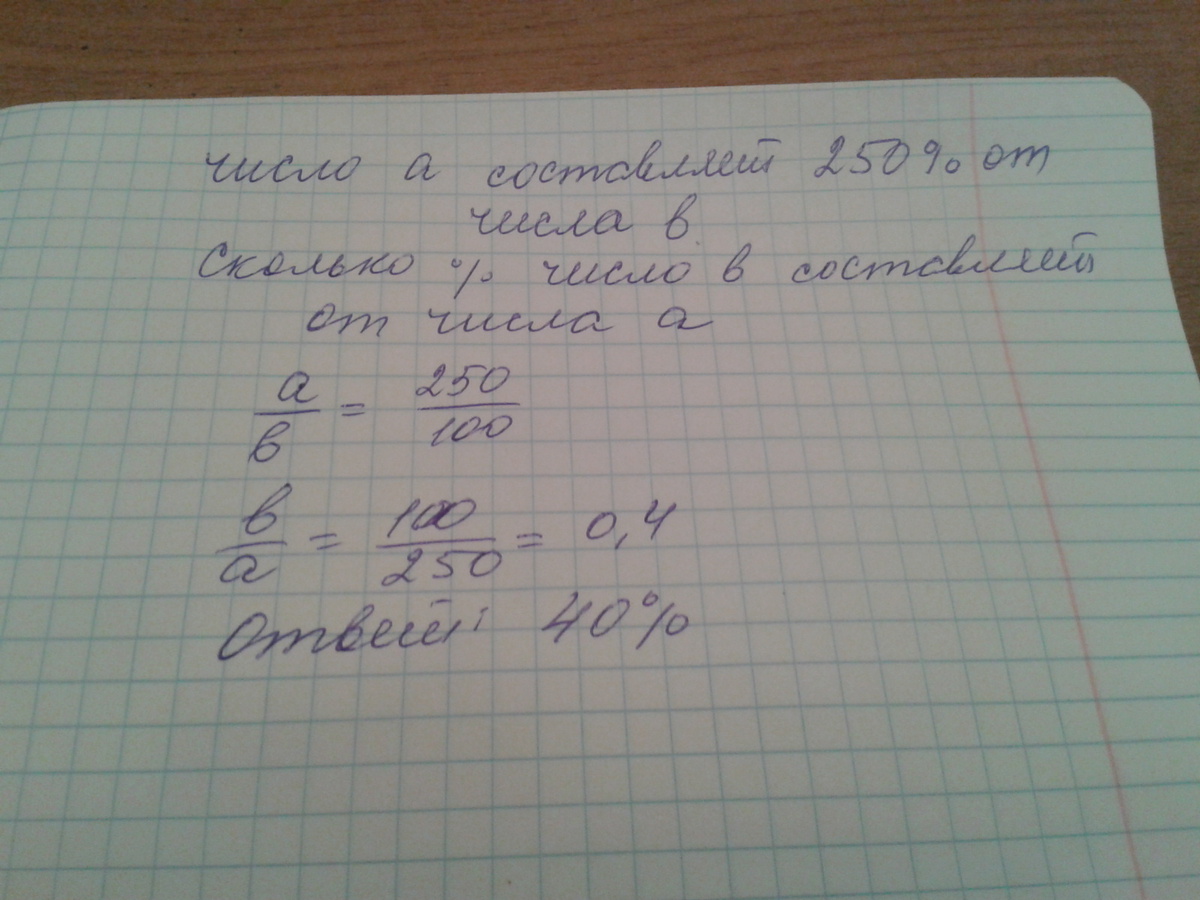 число а составляет 250% от
числа в
Сколько % число в составляет
от числа а
а/в = 250/100
в/а = 100/250 = 0,4
Ответ: 40%